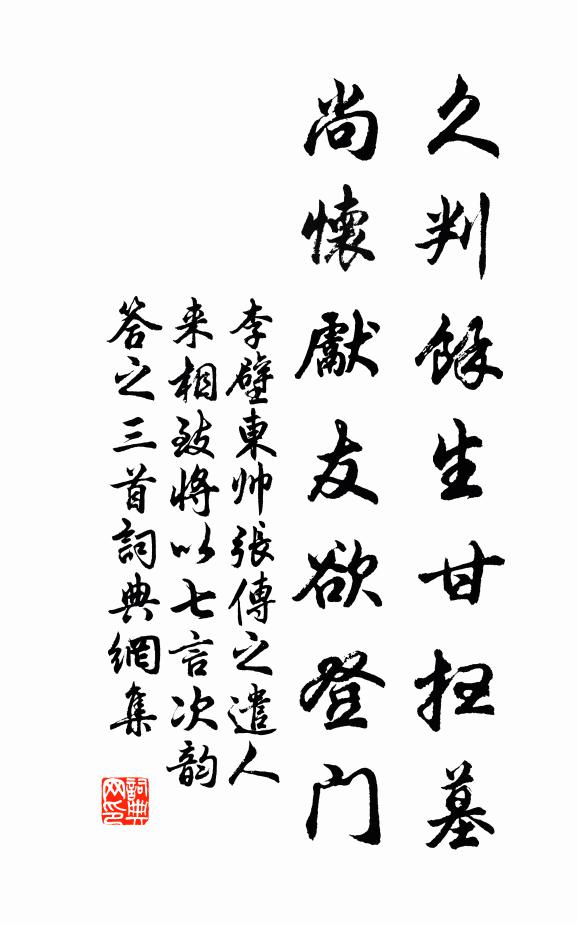 久判餘生甘扫墓
尚懷獻友欲登門
李壁東帅張傳之遣人
来相致将以七言次韵
答之三首詞典網集
詞典网印